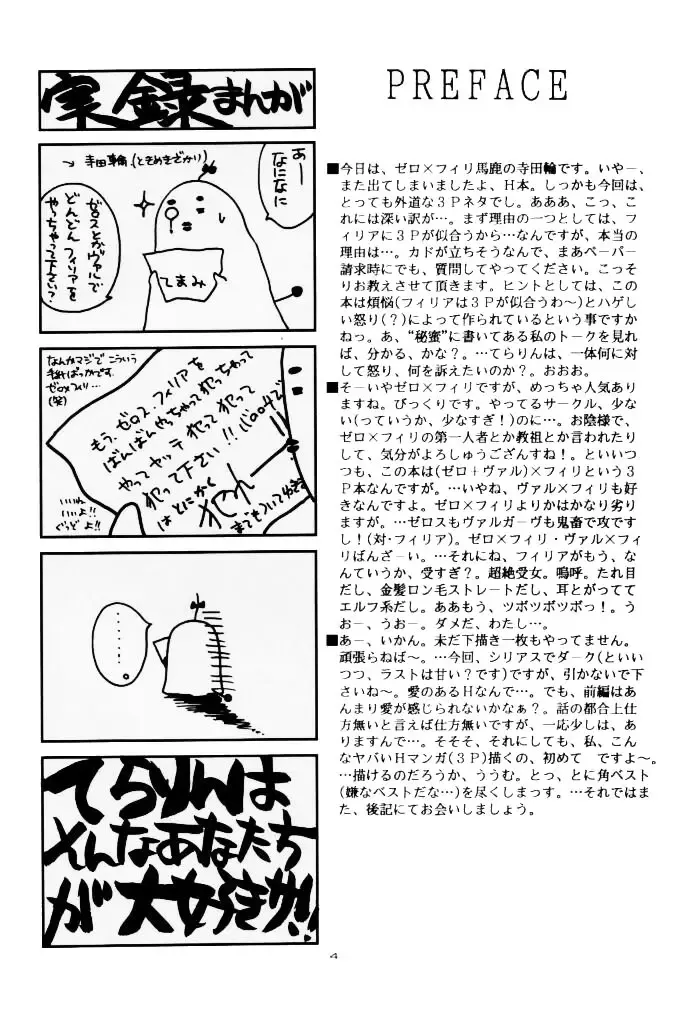 実録まんが
あー
なになに
→寺田輪(ときめきざかり)
てまみ
ゼロスとかヴァルで
どんどんフィリアを
やっちゃって下さい?
なんかマジでこういう
手紙ばっかです。
ゼロ×フィリ…
(笑)
もう、ゼロス、フィリアを
ばんばんやっちゃって犯っちゃって
やってヤッテ犯って犯って
犯って下さい!!
はとにかく
いいね
いいよ!!
ぐっどよ!!
……。
てらりんは
そんなあなたち
が大好きサ!!
PREFACE
■今日は、ゼロ×フィリ馬鹿の寺田輪です。いやー、
また出てしまいましたよ、H本。しっかも今回は、
とっても外道な3Pネタでし。あああ、こっ、こ
れには深い訳が…。まず理由の一つとしては、フ
ィリアに3Pが似合うから…なんですが、本当の
理由は…。カドが立ちそうなんで、まあペーパー
請求時にでも、質問してやってください。こっそ
りお教えさせて頂きます。ヒントとしては、この
本は煩悩(フィリアは3Pが似合うわ～)とハゲし
い怒り(?)によって作られているという事ですか
ねっ。あ、“秘蜜”に書いてある私のトークを見れ
ば、分かる、かな?。…てらりんは、一体何に対
して怒り、何を訴えたいのか?。おおお。
■そーいやゼロ×フィリですが、めっちゃ人気あり
ますね。びっくりです。やってるサークル、少な
い(っていうか、少なすぎ!)のに…。お陰様で、
ゼロ×フィリの第一人者とか教祖とか言われたり
して、気分がよろしゅうござんすね!。といいつ
つも、この本は(ゼロ＋ヴァル)×フィリという3
P本なんですが。…いやね、ヴァル×フィリも好
きなんですよ。ゼロ×フィリよりかはかなり劣り
ますが。…ゼロスもヴァルガーヴも鬼畜で攻です
し!(対・フィリア)。ゼロ×フィリ・ヴァル×フィ
リばんざーい。…それにね、フィリアがもう、な
んていうか、受すぎ?。超絶受女。嗚呼。たれ目
だし、金髪ロン毛ストレートだし、耳とがってて
エルフ系だし。ああもう、ツボツボツボっ!。う
おー、うおー。ダメだ、わたし…。
■あー、いかん。未だ下描き一枚もやってません。
頑張らねば～。…今回、シリアスでダーク(といい
つつ、ラストは甘い?です)ですが、引かないで下
さいね～。愛のあるHなんで…。でも、前編はあ
んまり愛が感じられないかなぁ?。話の都合上仕
方無いと言えば仕方無いですが、一応少しは、あ
りますんで…。そそそ、それにしても、私、こん
なヤバいHマンガ(3P)描くの、初めて　ですよ～。
…描けるのだろうか、ううむ。とっ、とに角ベスト
(嫌なベストだな…)を尽くしまっす。…それではま
た、後記にてお会いしましょう。
4